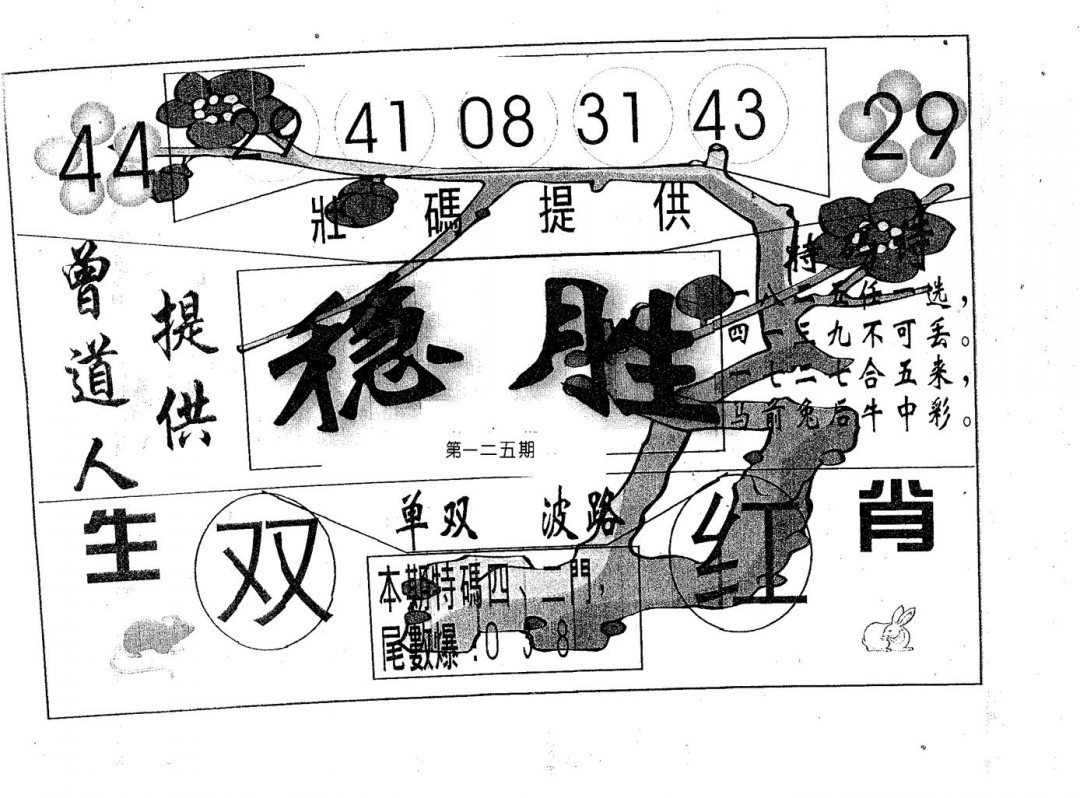 44 29 41 08 31 43 29
壯碼提供
特碼诗
一八二五任一选，
四一三九不可丢。
一七二七合五来，
马前兔后牛中彩。
曾道人
提供
稳胜
第一二五期
单双 波路
生 双 红 肖
本期特碼四、二門，
尾數爆：0 3 8